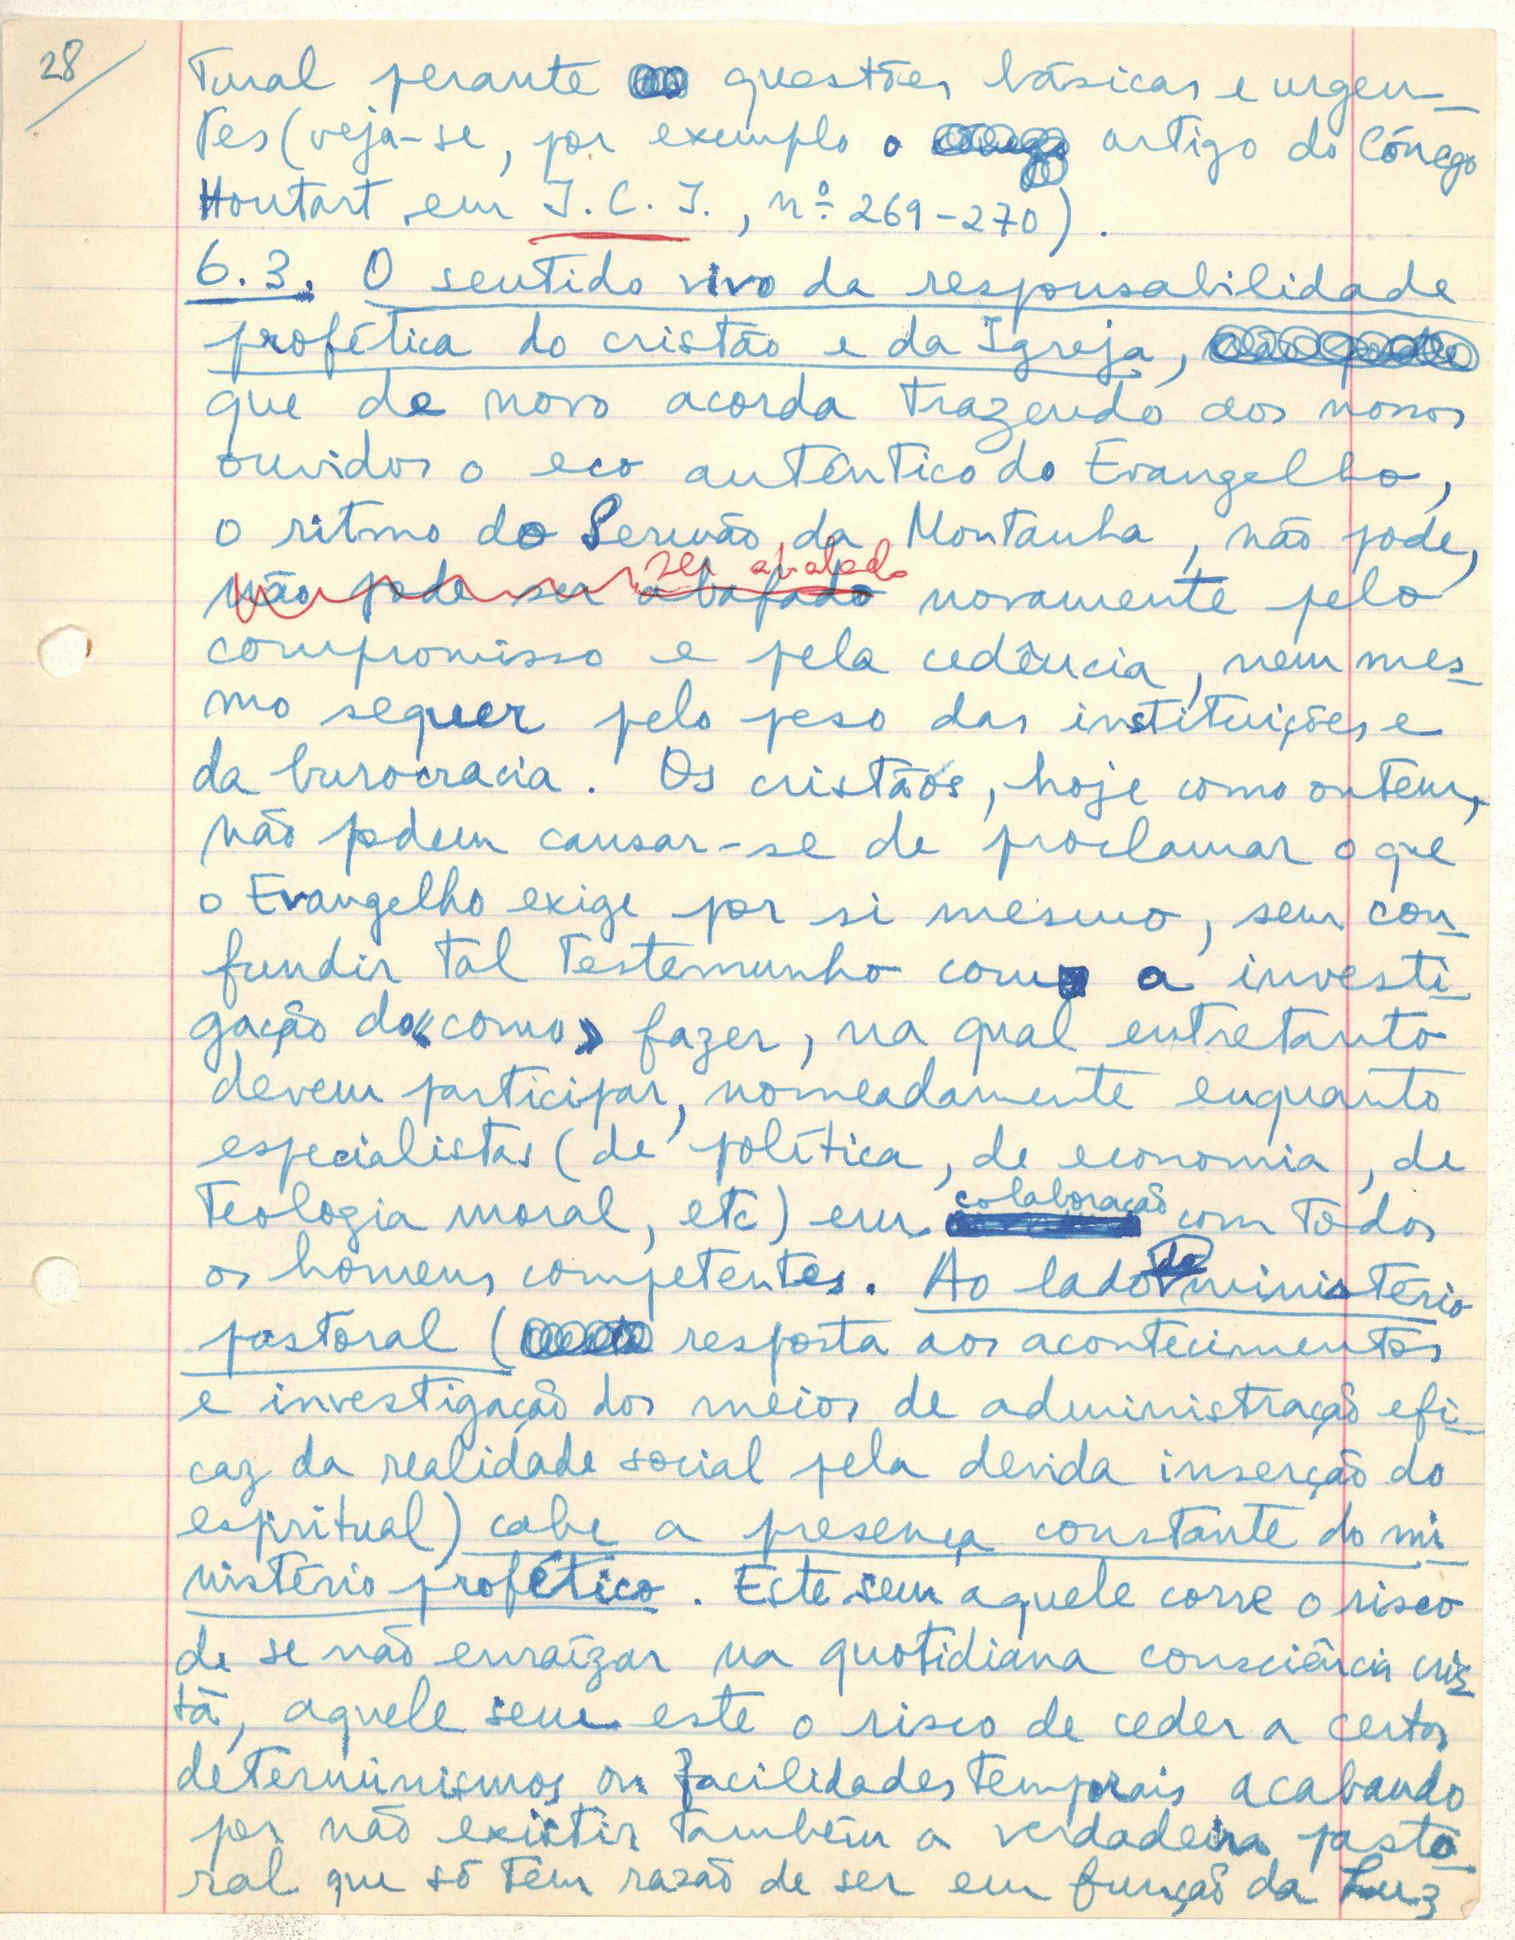 28
tural perante questões básicas e urgen-
tes (veja-se, por exemplo o artigo do Cónego
Houtart em I.C.I., nº 269-270).
6.3. O sentido vivo da responsabilidade
profética do cristão e da Igreja,
que de novo acorda trazendo aos nossos
ouvidos o eco autêntico do Evangelho,
o ritmo do Sermão da Montanha, não pode,
ser abafado
não pode ser abafado novamente pelo
compromisso e pela cedência, nem mes-
mo sequer pelo peso das instituições e
da burocracia. Os cristãos, hoje como ontem,
não podem cansar-se de proclamar o que
o Evangelho exige por si mesmo, sem con-
fundir tal testemunho com a investi-
gação do «como» fazer, na qual entretanto
devem participar, nomeadamente enquanto
especialistas (de política, de economia, de
teologia moral, etc) em colaboração com todos
os homens competentes. Ao lado do ministério
pastoral ( resposta aos acontecimentos
e investigação dos meios de administração efi-
caz da realidade social pela devida inserção do
espiritual) cabe a presença constante do mi-
nistério profético. Este sem aquele corre o risco
de se não enraízar na quotidiana consciência cris-
tã, aquele sem este o risco de ceder a certos
determinismos ou facilidades temporais acabando
por não existir também a verdadeira pasto-
ral que só tem razão de ser em função da Luz